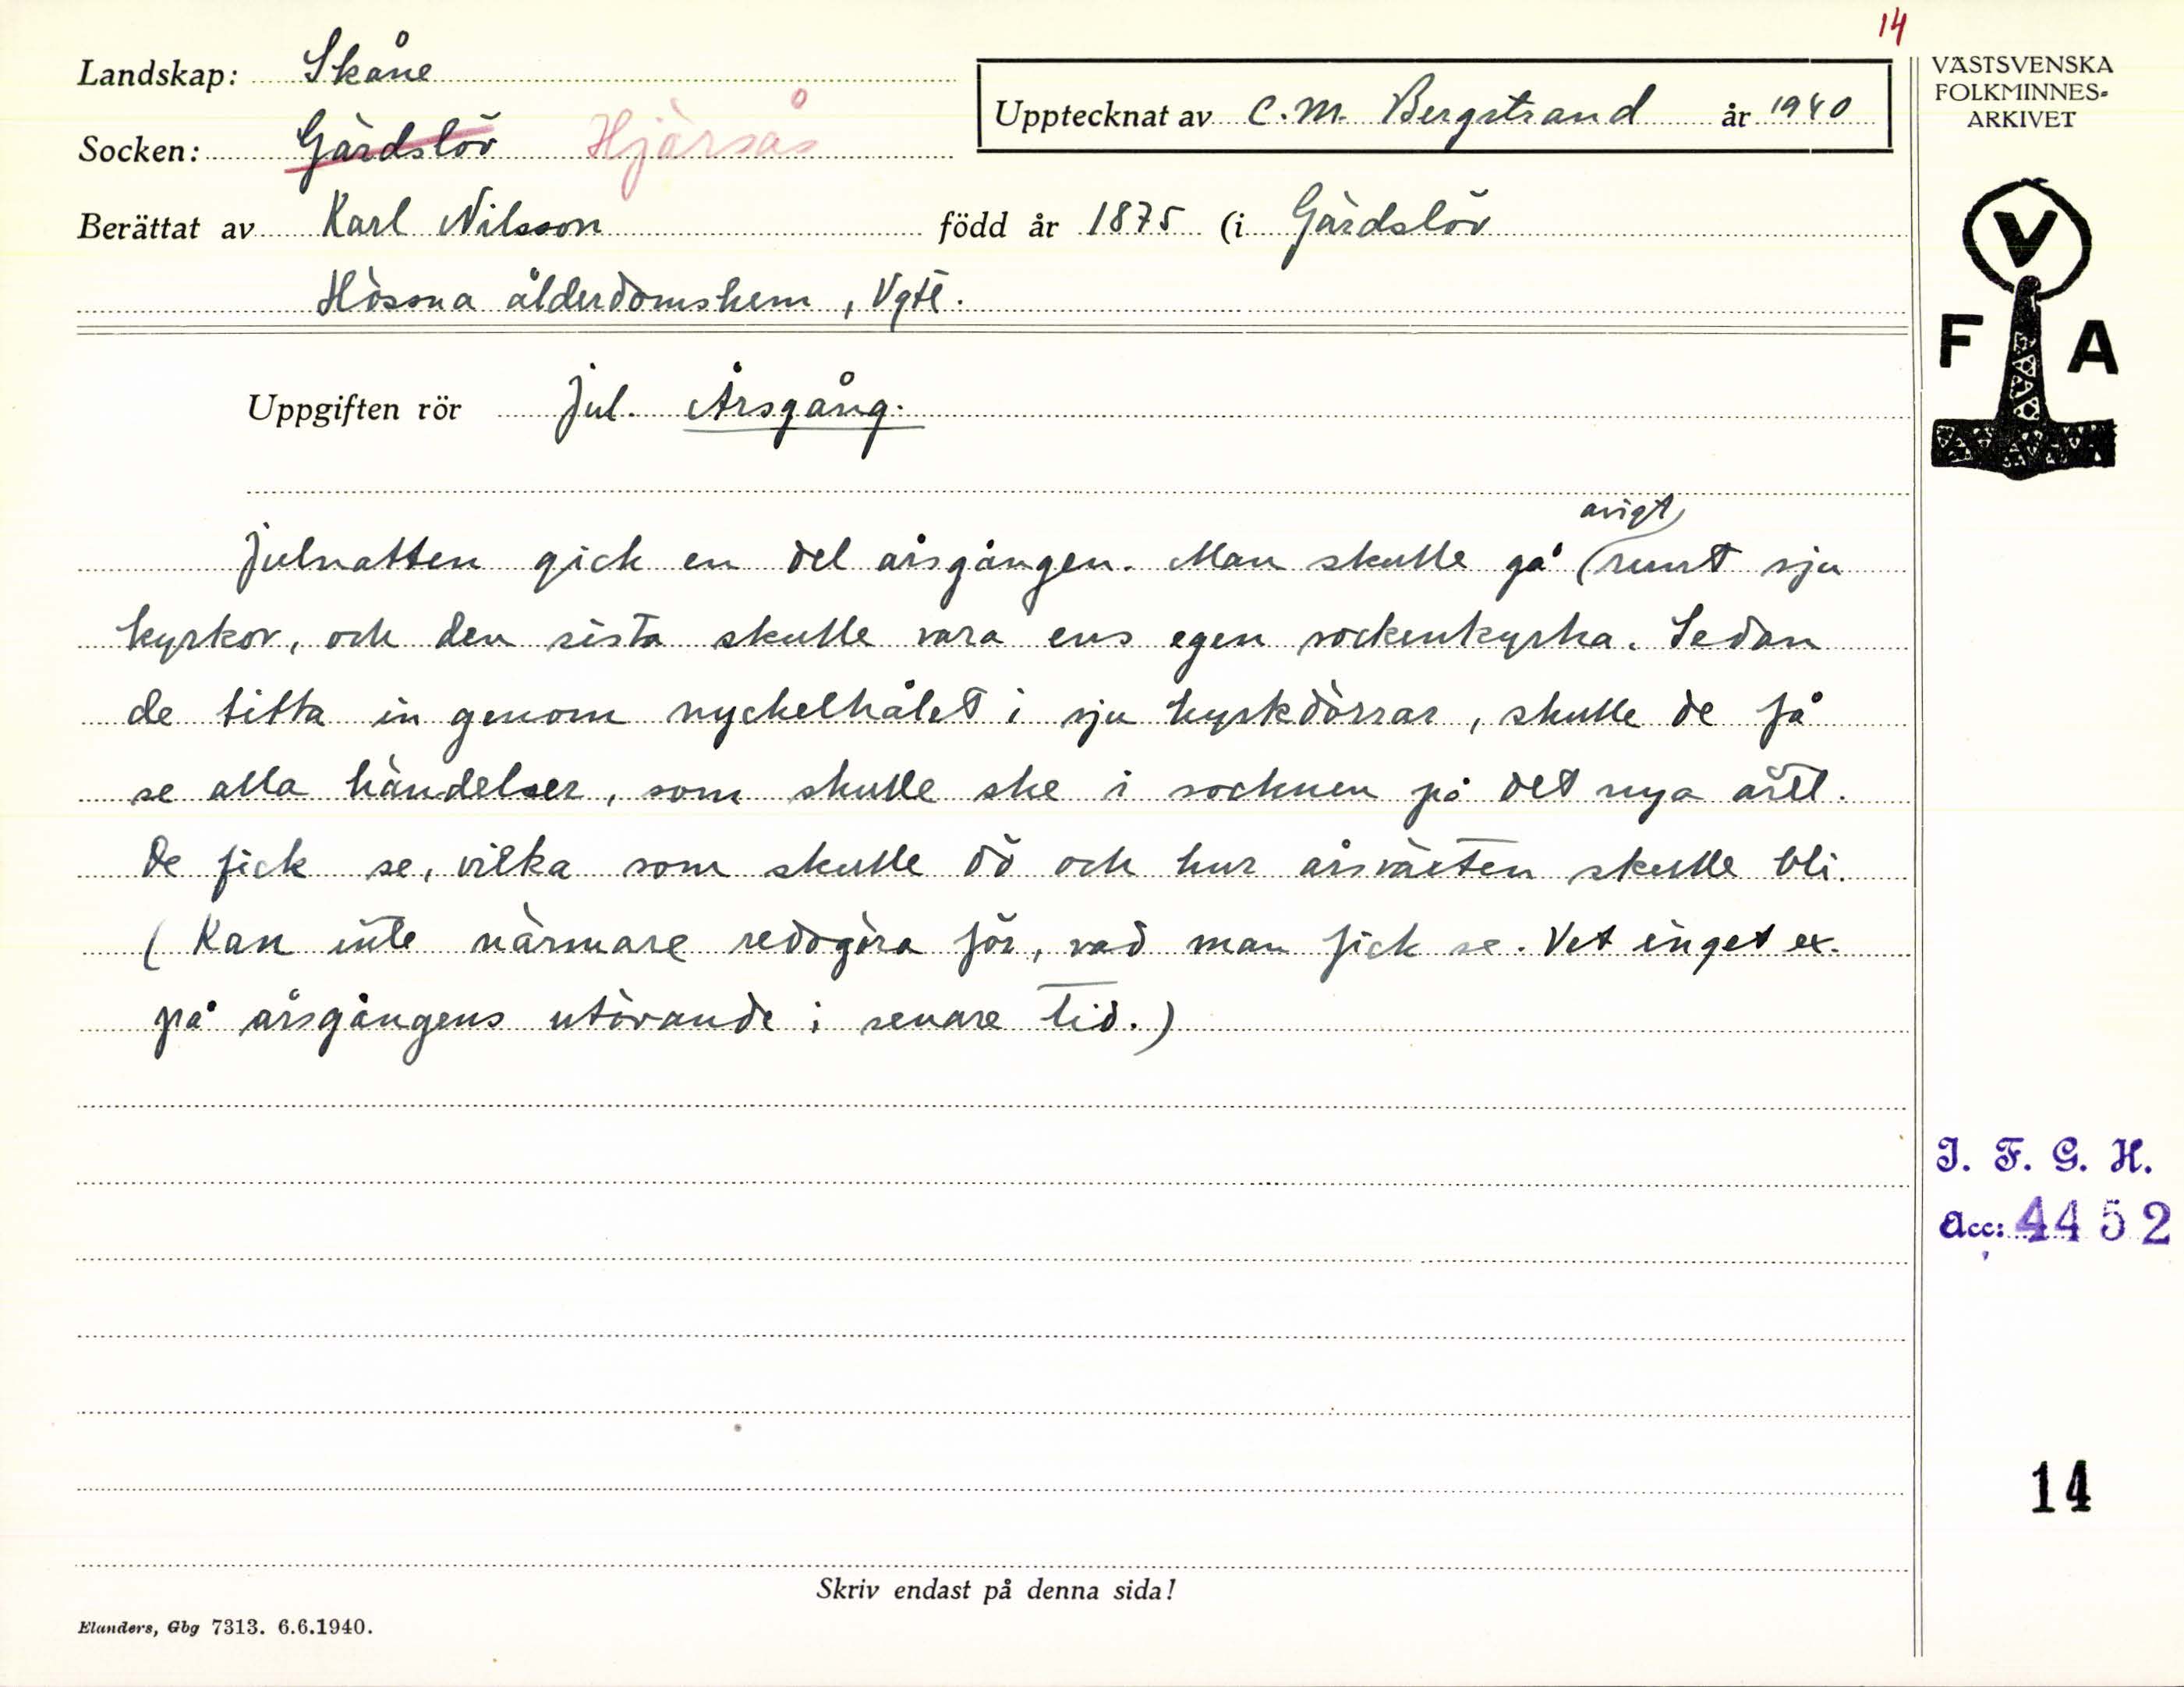 14
Landskap: Skåne
Upptecknat av C.M. Bergstrand år 1940
Socken: Gärdslöv Hjärsås
Berättat av Karl Nilsson född år 1875 (i Gärdslöv
Hössna ålderdomshem, Vgtl.
Uppgiften rör Jul. Årsgång.
avigt
Julnatten gick en del årsgången. Man skulle gå (runt sju
kyrkor, och den sista skulle vara ens egen sockenkyrka. Sedan
de titta in genom nyckelhålet i sju kyrkdörrar, skulle de få
se alla händelser, som skulle ske i socknen på det nya året.
De fick se, vilka som skulle dö och hur årsväxten skulle bli.
(Kan inte närmare redogöra för, vad man fick se. Vet inget ex.
på årsgångens utövande i senare tid.)
Skriv endast på denna sida!
Elanders, Gbg 7313. 6.6.1940.
VÄSTSVENSKA
FOLKMINNES-
ARKIVET
V
F A
I. F. G. H.
Acc: 4452
14